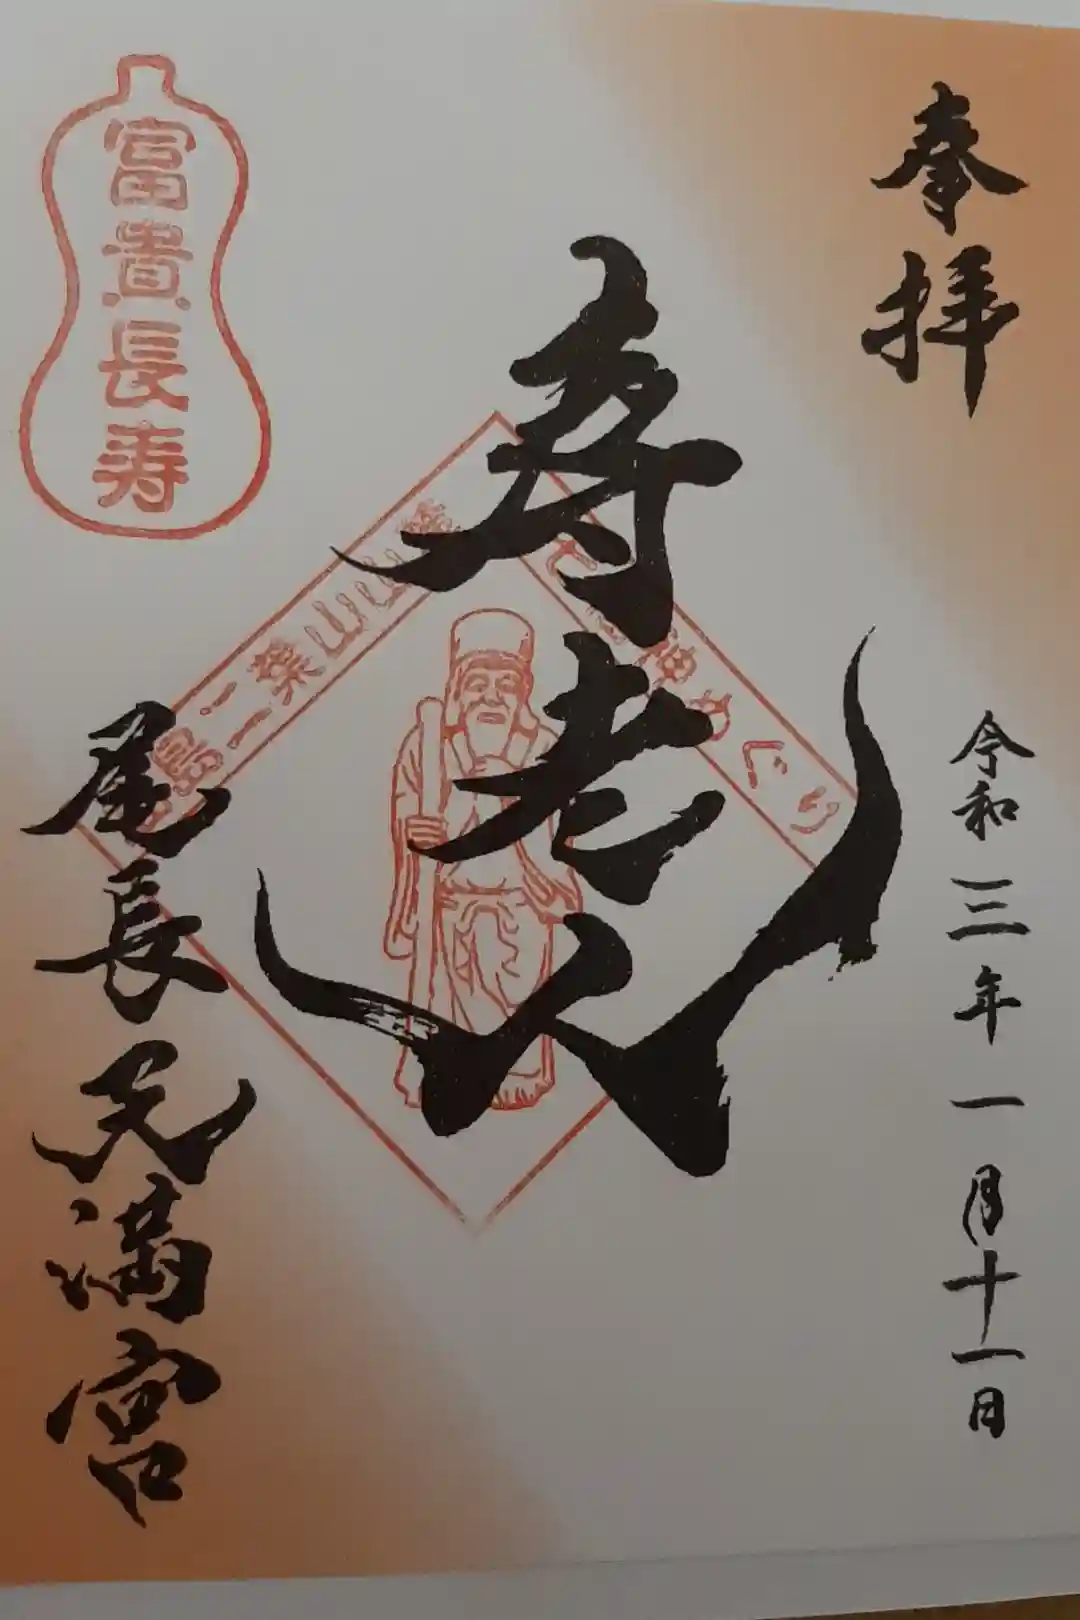 奉拝
令和三年一月十一日
寿老人
七福神めぐり
二葉山山麓
尾長天満宮
富貴長寿